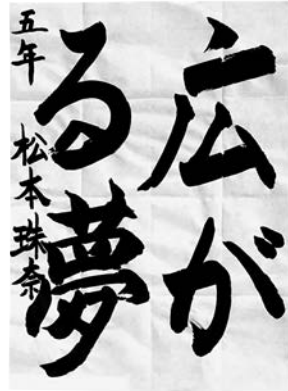 広が
る夢
五年 松本珠奈